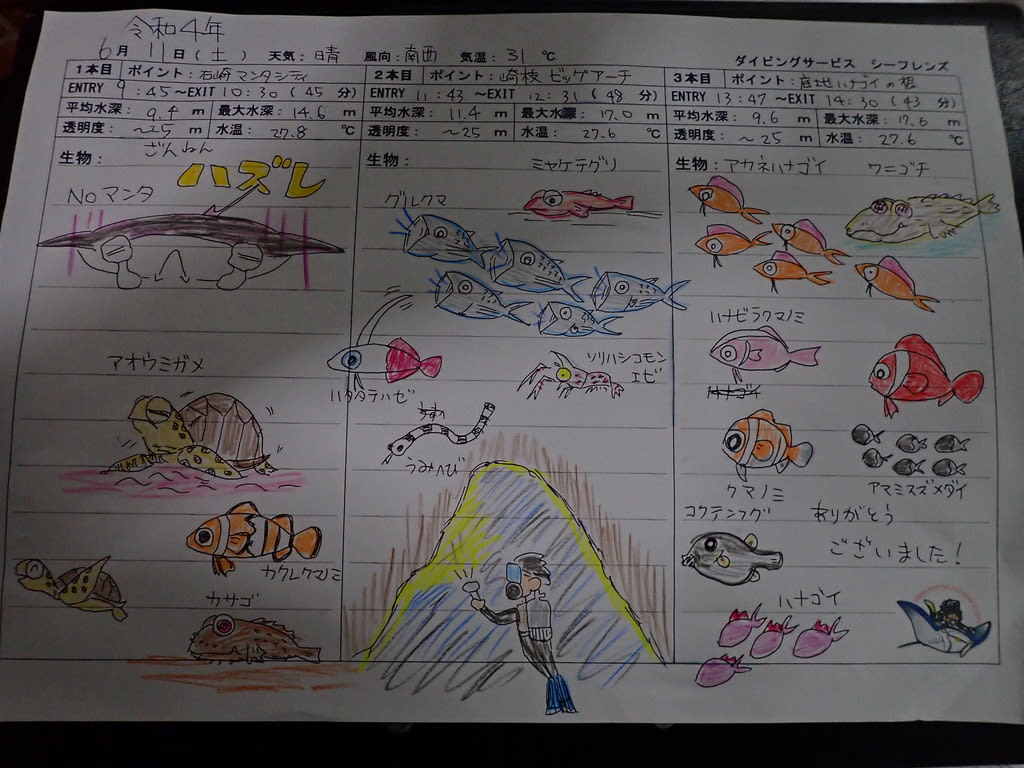 令和4年
6月 11日(土) 天気:晴 風向:南西 気温:31 ℃
ダイビングサービス シーフレンズ
1本目 ポイント:石崎マンタシティ
ENTRY 9:45~EXIT 10:30 (45 分)
平均水深: 9.4 m 最大水深:14.6 m
透明度: ~25 m 水温: 27.8 ℃
生物: ざんねん
ハズレ
Noマンタ
アオウミガメ
カクレクマノミ
カサゴ
2本目 ポイント:崎枝 ビッグアーチ
ENTRY 11:43 ~EXIT 12:31 (48 分)
平均水深: 11.4 m 最大水深: 17.0 m
透明度: ~25 m 水温: 27.6 ℃
生物:
ミヤケテグリ
グルクマ
ハタタテハゼ
ソリハシコモン
エビ
うみへび
3本目 ポイント:底地ハナゴイの根
ENTRY 13:47 ~EXIT 14:30 (43 分)
平均水深: 9.6 m 最大水深:17.6 m
透明度: ~25 m 水温: 27.6 ℃
生物:アカネハナゴイ ワニゴチ
ハナビラクマノミ
ハナゴイ
クマノミ
アマミスズメダイ
コクテンフグ
ありがとう
ございました!
ハナゴイ